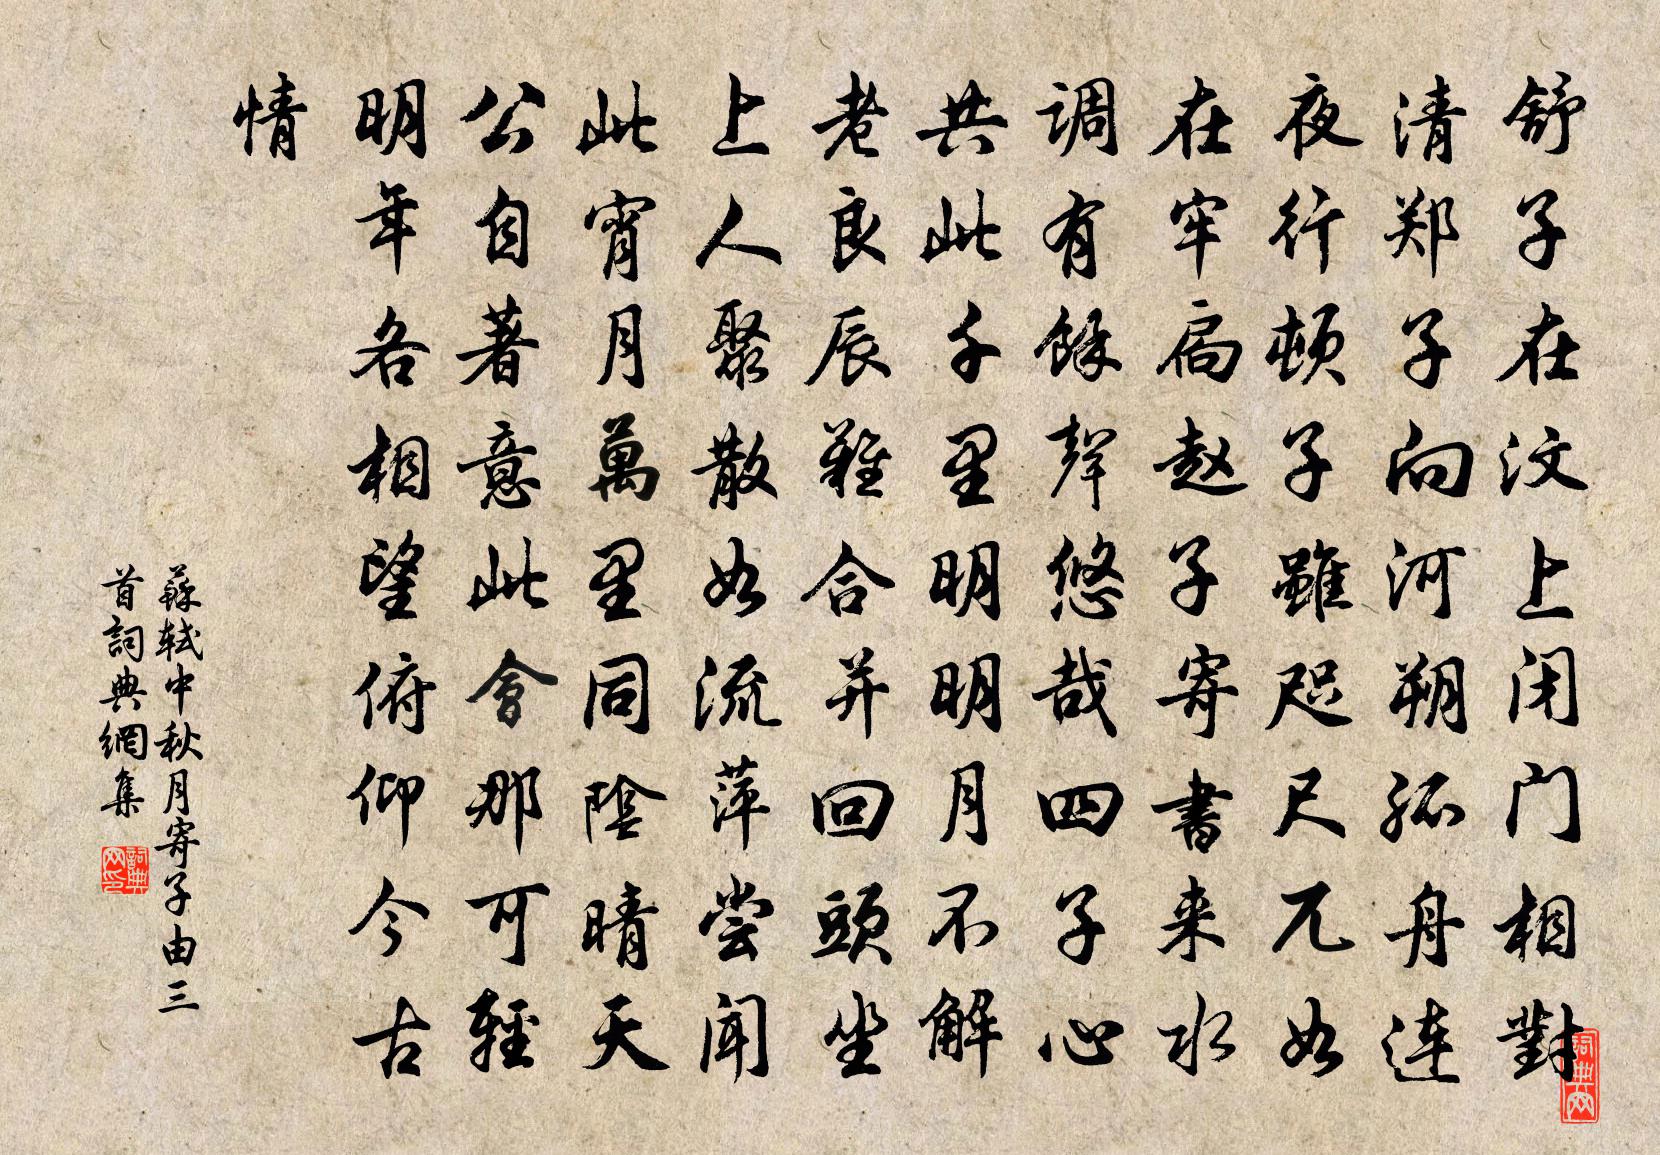 舒子在汶上闭门相對
清郑子向河朔孤舟连
夜行顿子雖咫尺兀如
在牢扃赵子寄書来水
调有餘聲悠哉四子心
共此千里明明月不解
老良辰難合并回頭坐
上人聚散如流萍尝闻
此宵月萬里同陰晴天
公自著意此會那可輕
明年各相望俯仰今古
情
蘇轼中秋月寄子由三
首詞典網集
詞典网
詞典网印